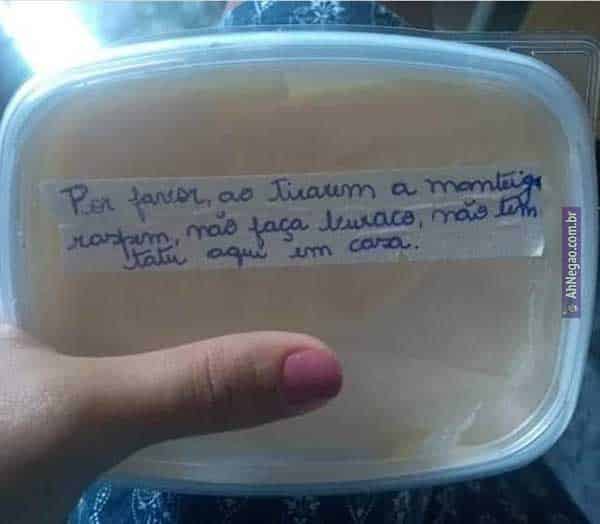 Por favor, ao tirarem a manteiga
raspem, não faça buraco, não tem
tatu aqui em casa.
AhNegao.com.br